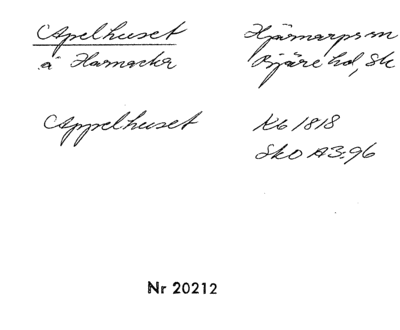 Apelhuset
å Harnacka
Hjärnarps sn
Bjäre hd, Sk
Appelhuset
Kb 1818
Sko A3:96
Nr 20212